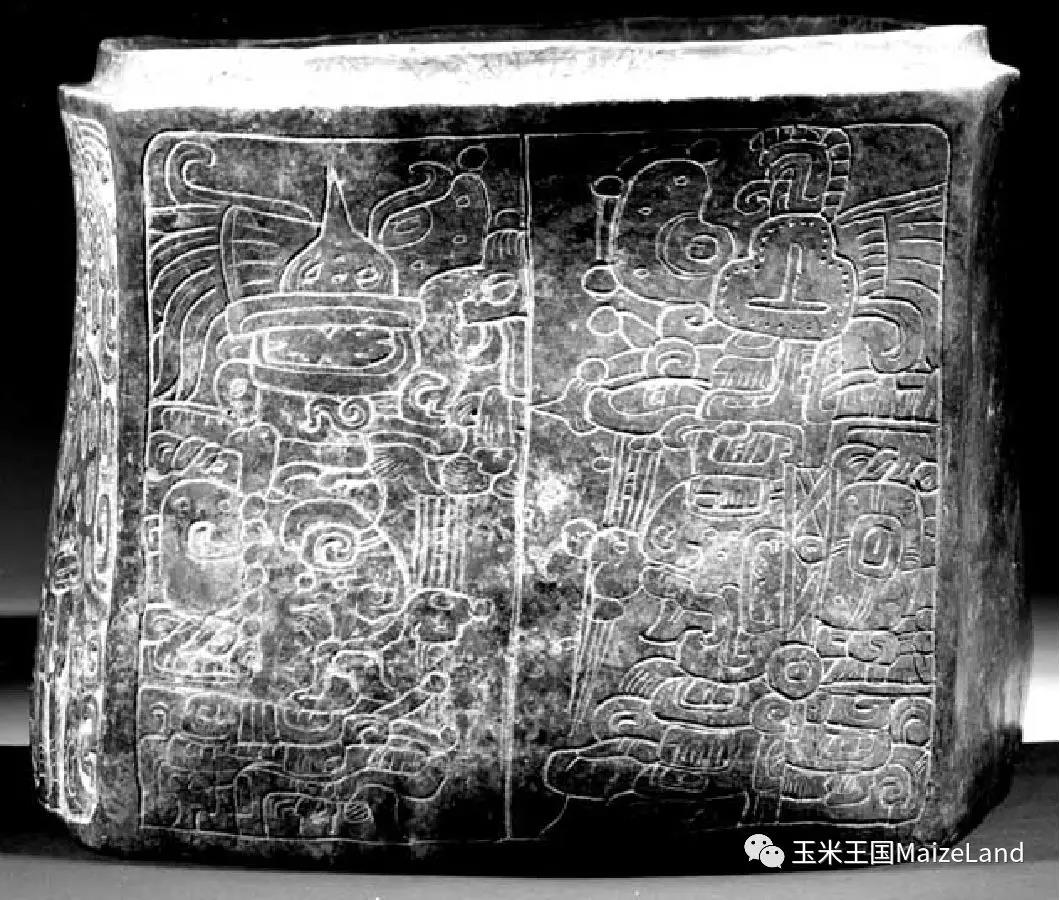 玉米王国MaizeLand